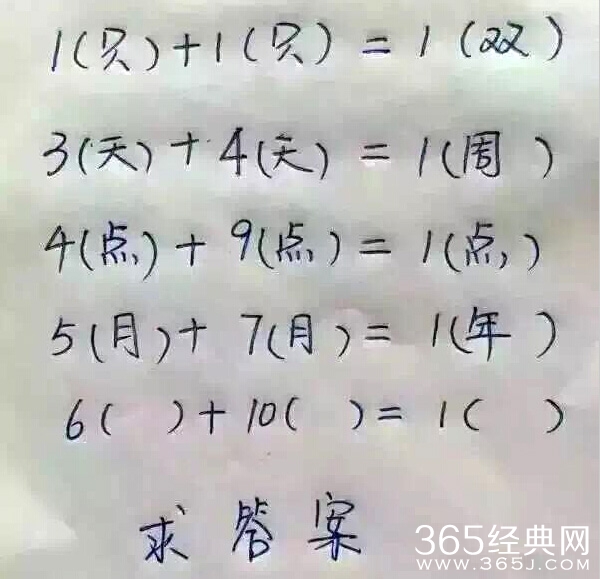 1(只)+1(只)=1(双)
3(天)+4(天)=1(周)
4(点)+9(点)=1(点)
5(月)+7(月)=1(年)
6( )+10( )=1( )
求答案
365经典网
WWW.365J.COM